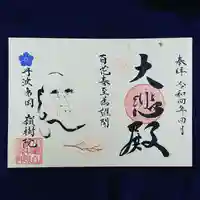 奉拝 令和四年四月
大悲殿
百花春至為誰開
丹波青田
嶺樹院